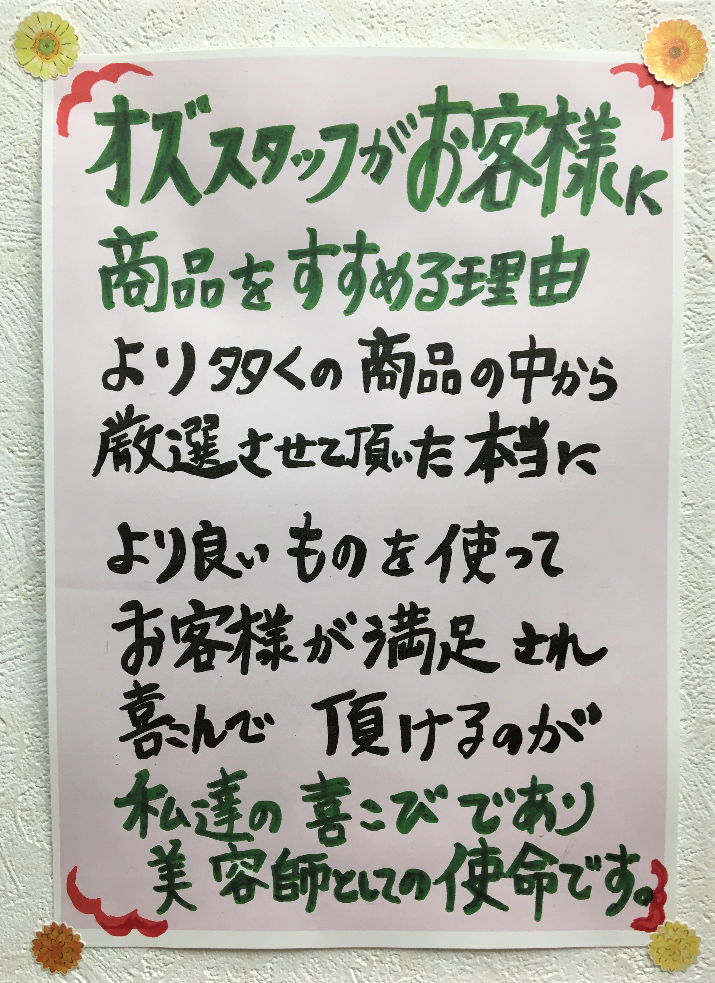 オズスタッフがお客様に
商品をすすめる理由
より多くの商品の中から
厳選させて頂いた本当に
より良いものを使って
お客様が満足され
喜こんで 頂けるのが
私達の喜こびであり
美容師としての使命です。